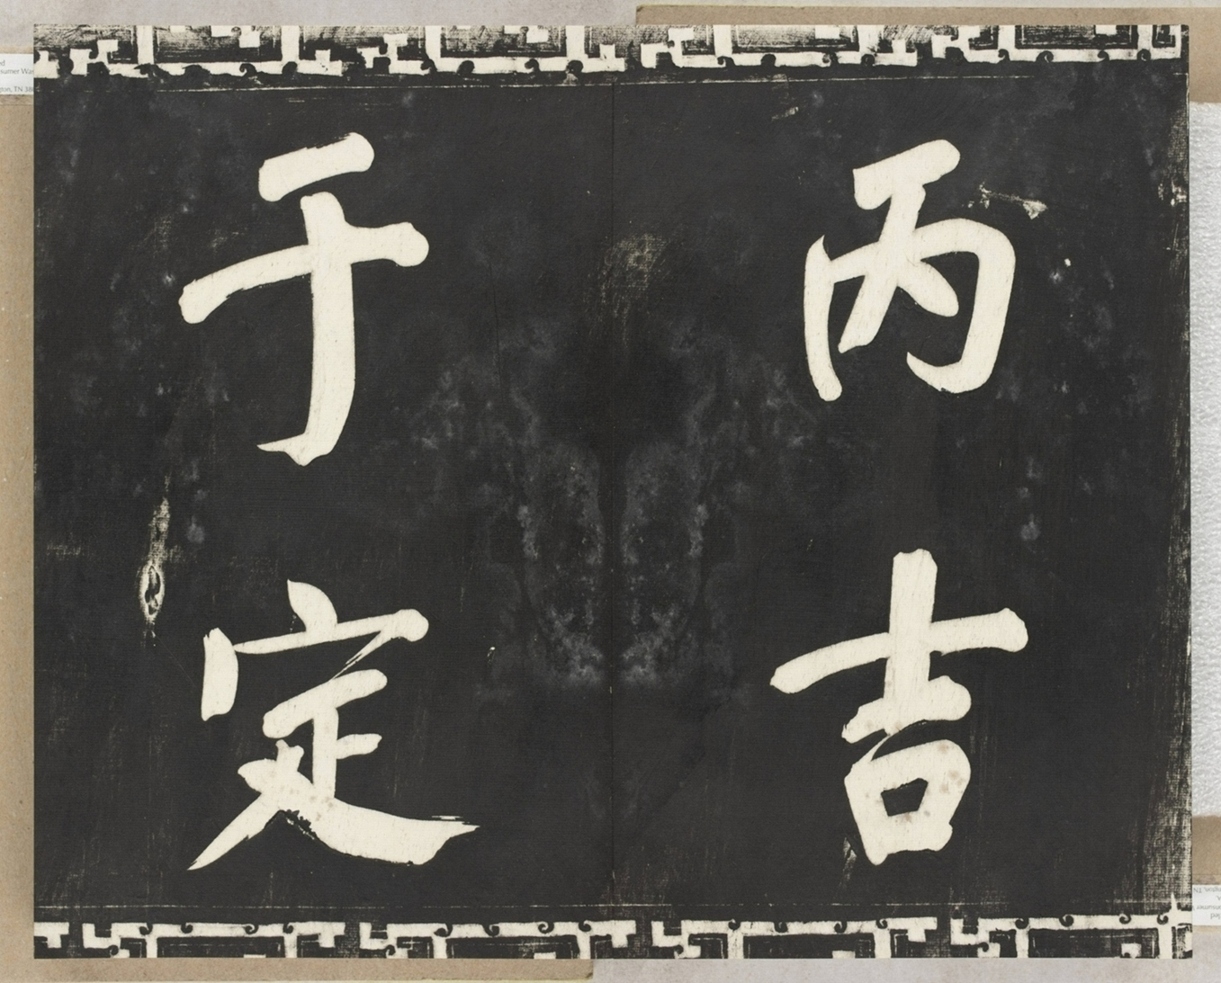 丙吉
于定